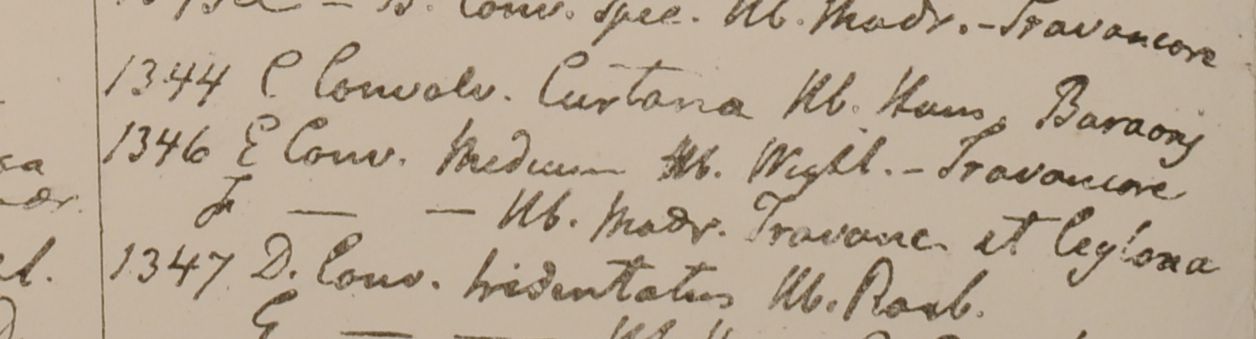 B. Conv. spec. Hb. Madr. - Travancore
1344 C Convolv. Curtana Hb. Ham.
1346 E Conv. Medium Hb. Wight. - Travancore
F — — Hb. Madr. Travanc. et Ceylona
1347 D. Conv. tridentatus Hb. Roxb.